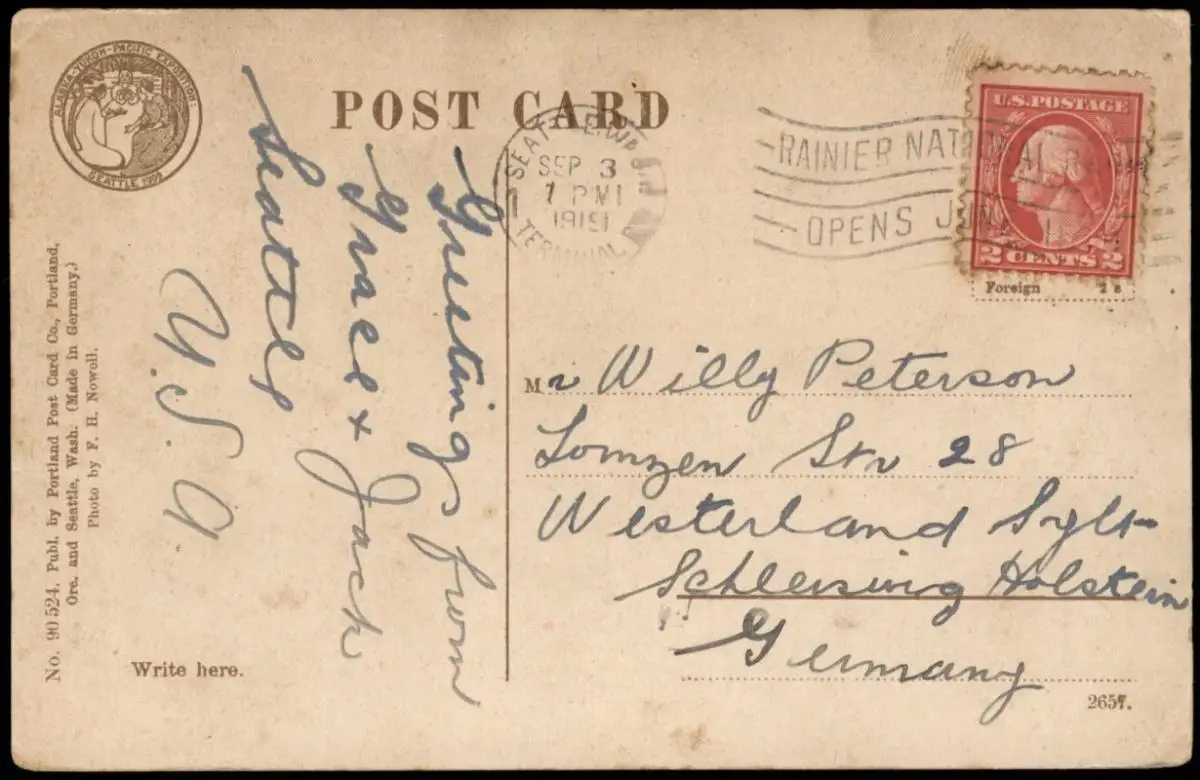 ALASKA-YUKON-PACIFIC EXPOSITION.
SEATTLE 1909
POST CARD
SEATTLE, WA
SEP 3
1 PM
1919
TERMINAL
RAINIER NATIONAL
OPENS JUN
U.S. POSTAGE
2 CENTS 2
Foreign 2 c
Greetings from
Grace + Jack
Seattle
U.S.A
Mr Willy Peterson
Str 28
Westerland Sylt
Schleswig Holstein
Germany
No. 90 524. Publ. by Portland Post Card Co., Portland,
Ore. and Seattle, Wash. (Made in Germany.)
Photo by F. H. Nowell.
Write here.
2657.